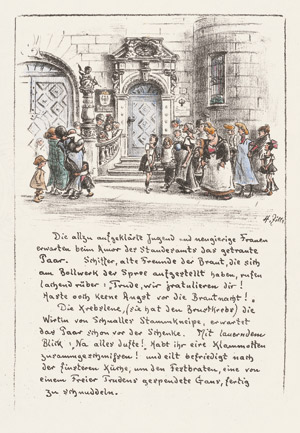 H. Zille
Die allzu aufgeklärte Jugend und neugierige Frauen
erwarten beim Amor des Standesamts das getraute
Paar. Schiffer, alte Freunde der Braut, die sich
am Bollwerk der Spree aufgestellt haben, rufen
lachend rüber: „Trude, wir gratulieren dir!
Haste ooch keene Angst vor die Brautnacht!"
Die Krebslene, (sie hat den Brustkrebs) die
Wirtin von Schnalles Stammkneipe, erwartet
das Paar schon vor der Schenke. Mit lauerndem
Blick: „Na, alles dufte! Habt ihr eire Klammotten
zusammgeschmissen! und eilt befriedigt nach
der finsteren Küche, um den Festbraten, eine von
einem Freier Trudens gespendete Gans, fertig
zu schnuddeln.